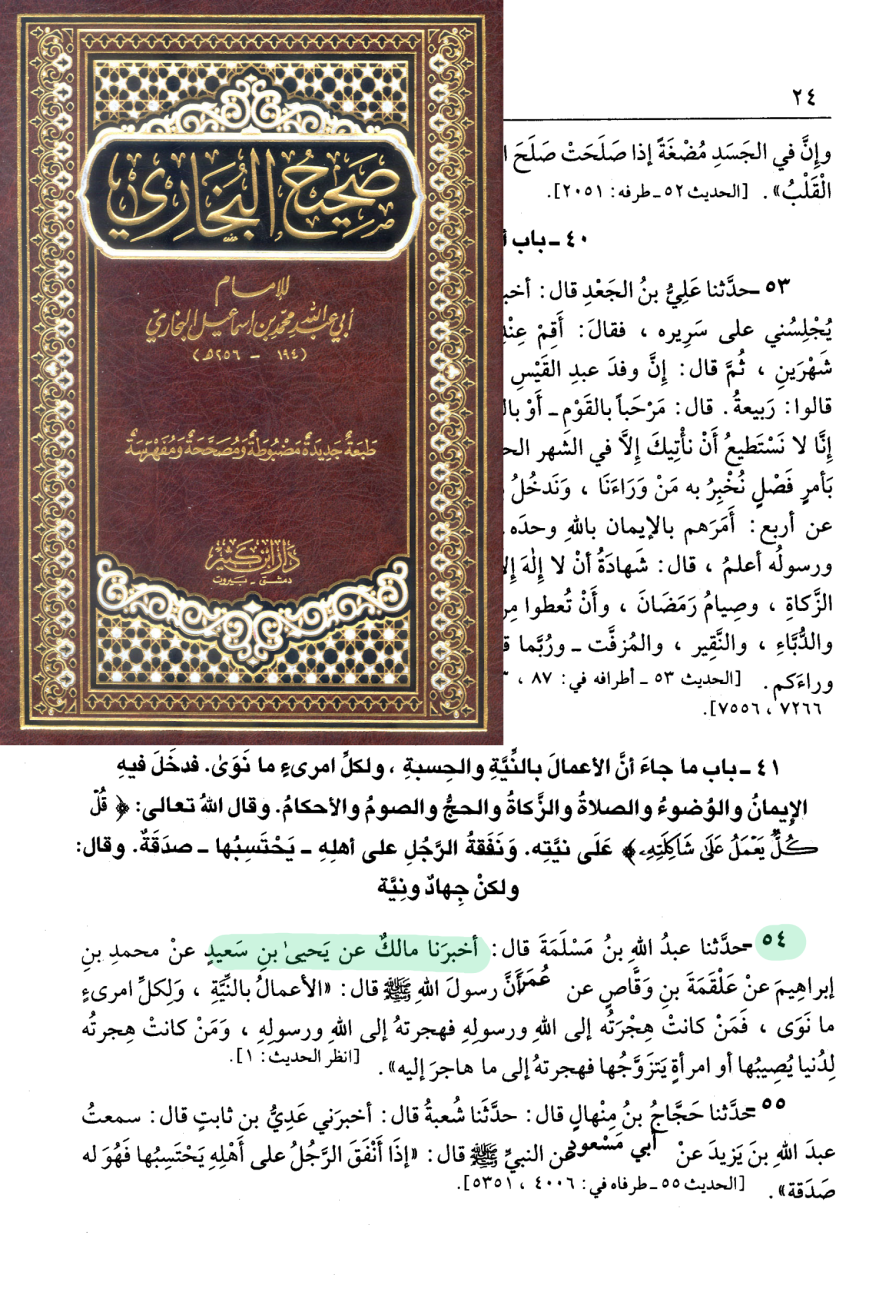 صَحِيحُ البُخَارِي
للإمام
أبي عبد الله محمد بن اسماعيل البخاري
(١٩٤ - ٢٥٦ هـ)
طَبعَةٌ جَدِيدَةٌ مَضْبُوطَةٌ وَمُصَحَّحَةٌ وَمُفَهْرَسَةٌ
دَارُ ابن كَثِير
دمشق - بيروت
٢٤
وإِنَّ في الجَسَدِ مُضْغَةً إذا صَلَحَتْ صَلَحَ
الْقَلْبُ». [الحديث ٥٢ ـ طرفه: ٢٠٥١].
٤٠ ـ باب
٥٣ ـ حدَّثنا عَلِيُّ بنُ الجَعْدِ قال:
يُجْلِسُني على سَرِيره ، فقالَ: أَقِمْ
شَهْرَينِ ، ثُمَّ قال: إِنَّ وفدَ عبدِ القَيْسِ
قالوا: رَبيعةُ. قال: مَرْحَباً بالقَوْمِ ـ أَوْ
إِنَّا لا نَسْتَطيعُ أَنْ نأْتِيكَ إلاَّ في الشهر
بَأمرٍ فَصْلٍ نُخْبِرُ به مَنْ وَرَاءَنَا ، وَندخُلُ
عن أربع: أَمَرَهم بالإيمان باللهِ وحدَه
ورسولُه أعلمُ ، قال: شَهادَةُ أنْ لا إِلٰهَ
الزَّكاةِ ، وصِيامُ رَمَضَانَ ، وأَنْ تُعطوا
والدُّبَّاءِ ، والنَّقِير ، والمُزفَّت ـ ورُبَّما
وراءَكم. [الحديث ٥٣ ـ أطرافه في: ٨٧ ،
٧٢٦٦ ، ٧٥٥٦].
٤١ ـ باب ما جاءَ أنَّ الأعمالَ بالنِّيَّةِ والحِسبةِ ، ولكلِّ امرىءٍ ما نَوَىٰ. فدخَلَ فيهِ
الإيمانُ والوُضوءُ والصلاةُ والزَّكاةُ والحجُّ والصومُ والأحكامُ. وقال اللهُ تعالى: ﴿ قُلْ
كُلٌّ يَعْمَلُ عَلَىٰ شَاكِلَتِهِۦ ﴾ عَلَى نيَّتِه. وَنَفَقةُ الرَّجُلِ على أهلِهِ ـ يَحْتَسِبُها ـ صدَقَةٌ. وقال:
ولكنْ جِهادٌ ونِيَّة
٥٤ ـ حدَّثنا عبدُ اللهِ بنُ مَسْلَمَةَ قال: أخبرَنا مالكٌ عن يَحيىٰ بنِ سَعيدٍ عنْ محمدِ بنِ
إبراهيمَ عنْ عَلْقَمَةَ بنِ وَقَّاصٍ عن عُمَرَ أَنَّ رسولَ اللهِ ﷺ قال: «الأعمالُ بالنِّيَّةِ ، وَلِكلِّ امرىءٍ
ما نَوَى ، فَمَنْ كانتْ هِجْرَتُه إلى اللهِ ورسولهِ فهجرتهُ إلى اللهِ ورسولِهِ ، وَمَنْ كانتْ هِجرتُه
لِدُنيا يُصِيبُها أو امرأةٍ يَتزَوَّجُها فهجرتهُ إلى ما هاجرَ إليه». [انظر الحديث: ١].
٥٥ ـ حدَّثنا حَجَّاجُ بنُ مِنْهالٍ قال: حدَّثَنا شُعبةُ قال: أخبرَني عَدِيُّ بن ثابتٍ قال: سمعتُ
عبدَ اللهِ بنَ يَزيدَ عنْ أبي مَسْعودٍ عن النبيِّ ﷺ قال: «إِذَا أَنْفَقَ الرَّجُلُ على أَهْلِهِ يَحْتَسِبُها فَهُوَ له
صَدَقة». [الحديث ٥٥ ـ طرفاه في: ٤٠٠٦ ، ٥٣٥١].